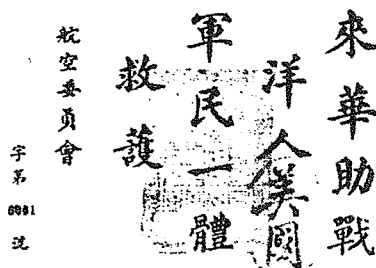 來華助戰
洋人美國
軍民一體
救護
航空委員會
字第
號